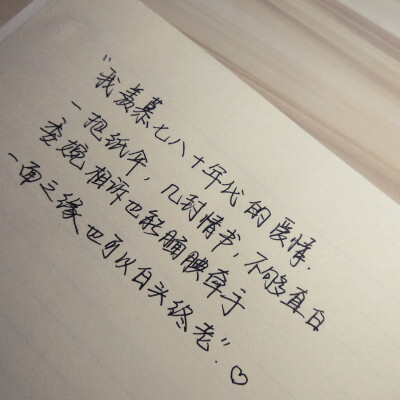 “我羡慕七八十年代的爱情.
一把纸伞，几封情书，不够直白
委婉相诉也能腼腆牵手
一面之缘也可以白头终老”.♡